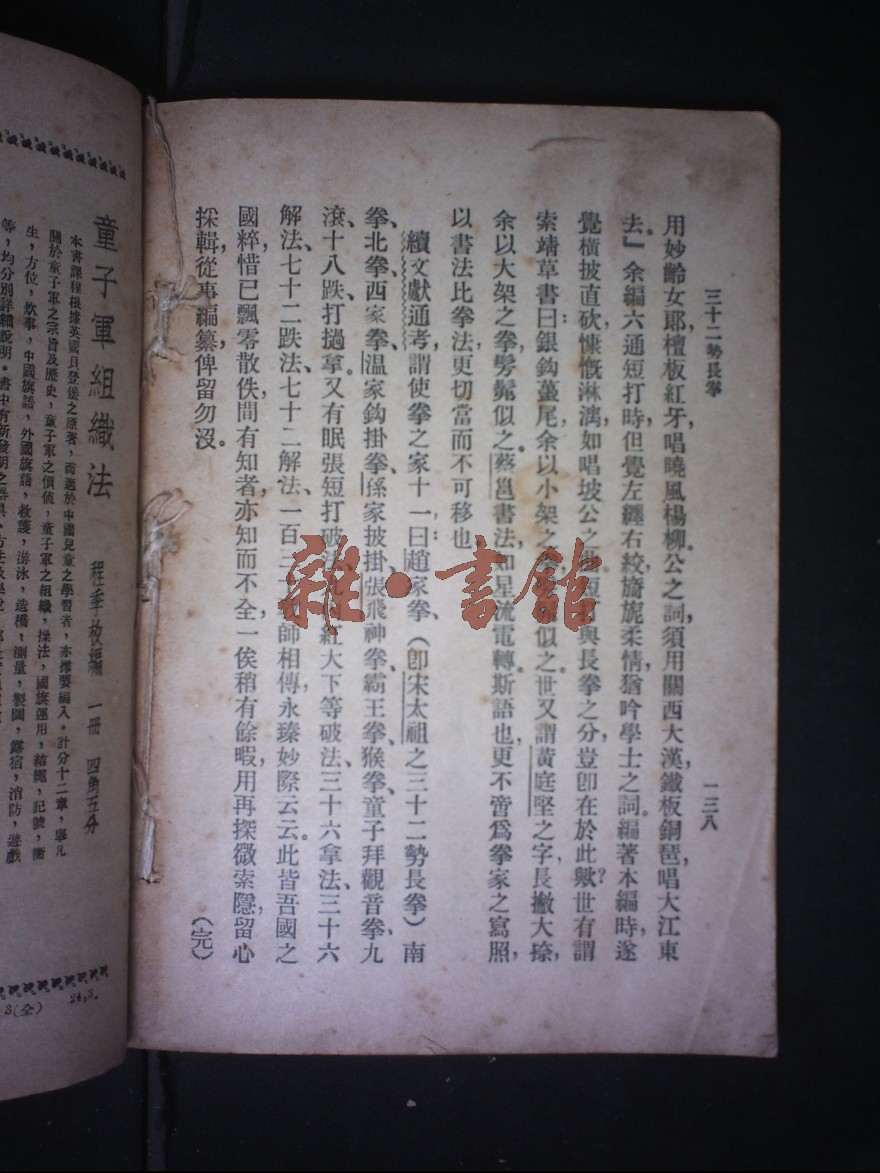 三十二勢長拳　一三八
用妙齡女郎，檀板紅牙，唱曉風楊柳，公之詞，須用關西大漢，鐵板銅琶，唱大江東
去。」余編六通短打時，但覺左纏右絞，旖旎柔情，猶吟學士之詞，編著本編時，遂
覺橫披直砍，慷慨淋漓，如唱坡公之 短打與長拳之分，豈卽在於此歟？世有謂
索靖草書曰：銀鈎蠆尾，余以小架之 似之。世又謂黃庭堅之字，長撇大捺，
余以大架之拳髣髴似之。蔡邕書法，如星流電轉，斯語也，更不啻爲拳家之寫照，
以書法比拳法，更切當而不可移也。
續文獻通考，謂使拳之家十一，曰：趙家拳、（卽宋太祖之三十二勢長拳）南
拳、北拳、西家拳、溫家鈎掛拳、孫家披掛、張飛神拳、霸王拳、猴拳、童子拜觀音拳、九
滾十八跌打撾拿。又有眠張短打破法、 紅大下等破法、三十六拿法、三十六
解法、七十二跌法、七十二解法、一百三 師相傳，永臻妙際云云。此皆吾國之
國粹，惜已飄零散佚，間有知者，亦知而不全，一俟稍有餘暇，用再探微索隱，留心
採輯，從事編纂，俾留勿沒。　（完）
雜·書館
童子軍組織法　程季枚編　一册　四角五分
本書課程根據英國貝登堡之原著，而適於中國兒童之學習者，亦擇要編入。計分十二章，舉凡
關於童子軍之宗旨及歷史，童子軍之價値，童子軍之組織，操法，國旗運用，結繩，記號，衞
生，方位，炊事，中國旗語，外國旗語，救護，游泳，造橋，測量，製圖，露宿，消防，遊戲
等，均分別詳細說明。書中有新發明之器具、方法及學
3(全)　24,3.